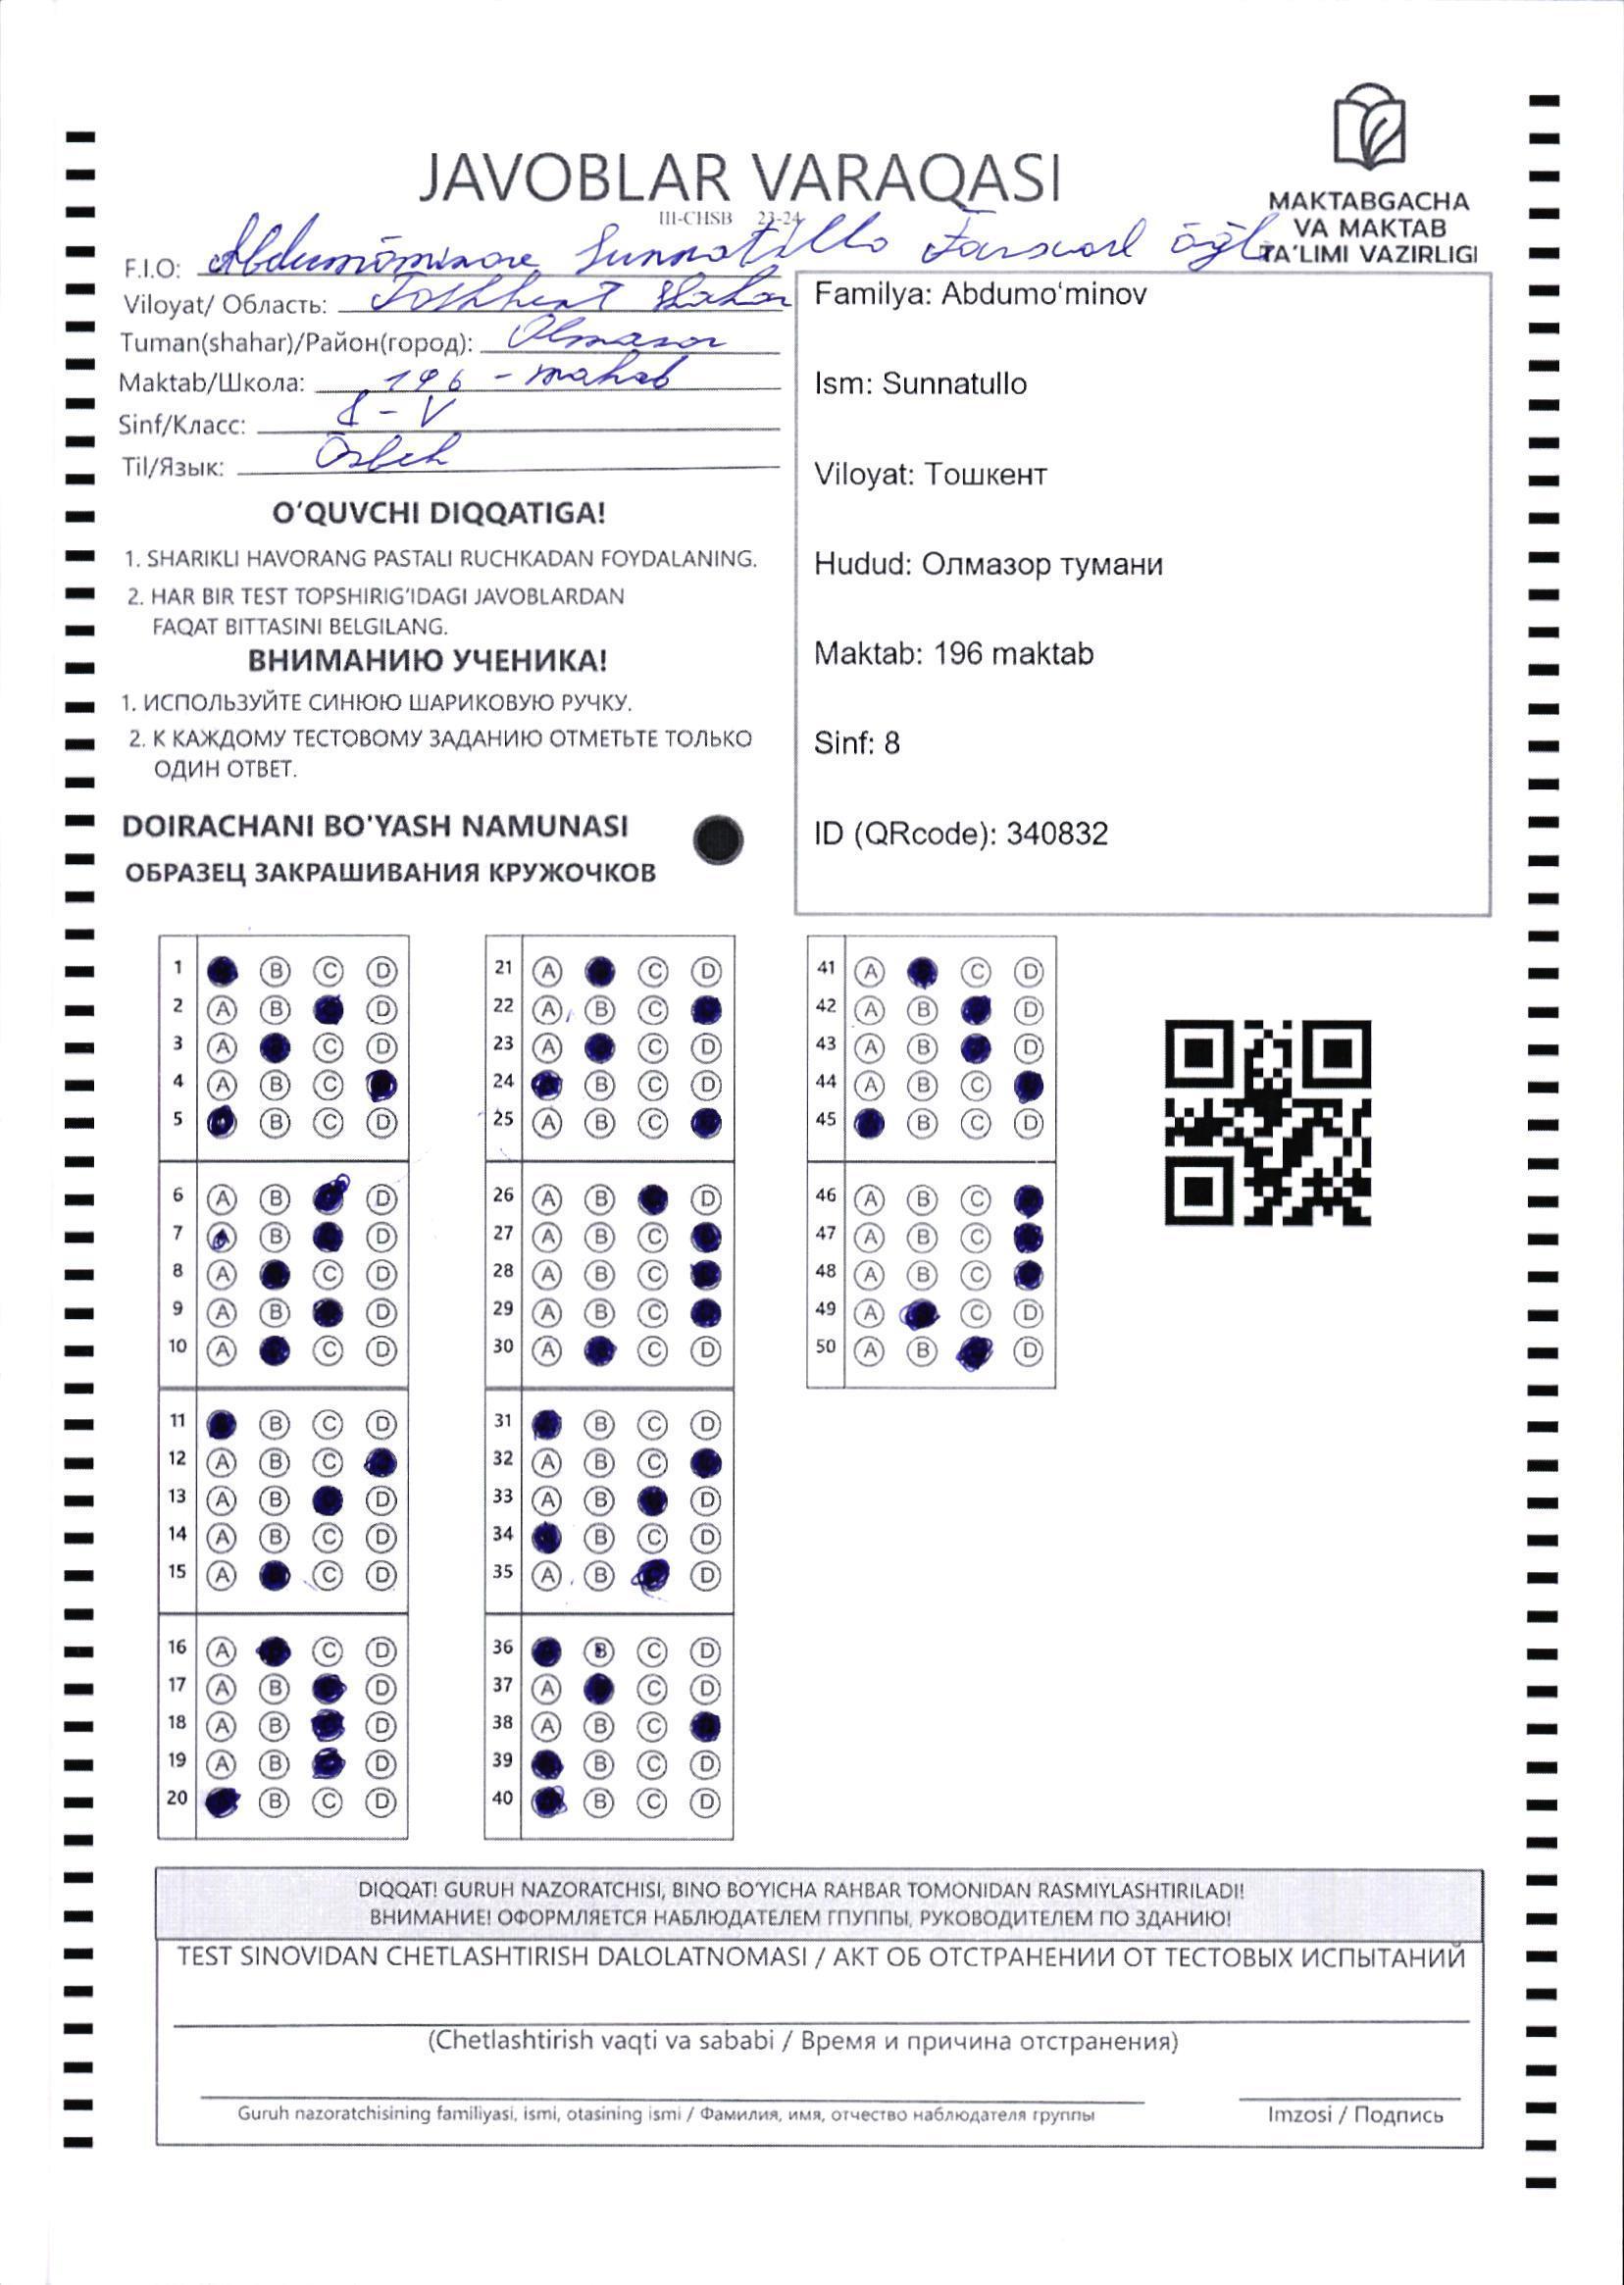 JAVOBLAR VARAQASI
III-CHSB 23-24
MAKTABGACHA
VA MAKTAB
TA'LIMI VAZIRLIGI
F.I.O: Abdumōminov Sunnatillo ōğli
Viloyat/ Область: Toshkent shahar
Tuman(shahar)/Район(город): Olmazor
Maktab/Школа: 196 - maktab
Sinf/Класс: 8 - V
Til/Язык: Ōzbek
Familya: Abdumo‘minov
Ism: Sunnatullo
Viloyat: Тошкент
Hudud: Олмазор тумани
Maktab: 196 maktab
Sinf: 8
ID (QRcode): 340832
O‘QUVCHI DIQQATIGA!
1. SHARIKLI HAVORANG PASTALI RUCHKADAN FOYDALANING.
2. HAR BIR TEST TOPSHIRIG‘IDAGI JAVOBLARDAN
FAQAT BITTASINI BELGILANG.
ВНИМАНИЮ УЧЕНИКА!
1. ИСПОЛЬЗУЙТЕ СИНЮЮ ШАРИКОВУЮ РУЧКУ.
2. К КАЖДОМУ ТЕСТОВОМУ ЗАДАНИЮ ОТМЕТЬТЕ ТОЛЬКО
ОДИН ОТВЕТ.
DOIRACHANI BO'YASH NAMUNASI
ОБРАЗЕЦ ЗАКРАШИВАНИЯ КРУЖОЧКОВ
1 B C D
2 A B D
3 A C D
4 A B C
5 B C D
6 A B D
7 A B D
8 A C D
9 A B D
10 A C D
11 B C D
12 A B C
13 A B D
14 A B C D
15 A C D
16 A C D
17 A B D
18 A B D
19 A B D
20 B C D
21 A C D
22 A B C
23 A C D
24 B C D
25 A B C
26 A B D
27 A B C
28 A B C
29 A B C
30 A C D
31 B C D
32 A B C
33 A B D
34 B C D
35 A B D
36 B C D
37 A C D
38 A B C
39 B C D
40 B C D
41 A C D
42 A B D
43 A B D
44 A B C
45 B C D
46 A B C
47 A B C
48 A B C
49 A C D
50 A B D
DIQQAT! GURUH NAZORATCHISI, BINO BO‘YICHA RAHBAR TOMONIDAN RASMIYLASHTIRILADI!
ВНИМАНИЕ! ОФОРМЛЯЕТСЯ НАБЛЮДАТЕЛЕМ ГПУППЫ, РУКОВОДИТЕЛЕМ ПО ЗДАНИЮ!
TEST SINOVIDAN CHETLASHTIRISH DALOLATNOMASI / АКТ ОБ ОТСТРАНЕНИИ ОТ ТЕСТОВЫХ ИСПЫТАНИЙ
(Chetlashtirish vaqti va sababi / Время и причина отстранения)
Guruh nazoratchisining familiyasi, ismi, otasining ismi / Фамилия, имя, отчество наблюдателя группы
Imzosi / Подпись